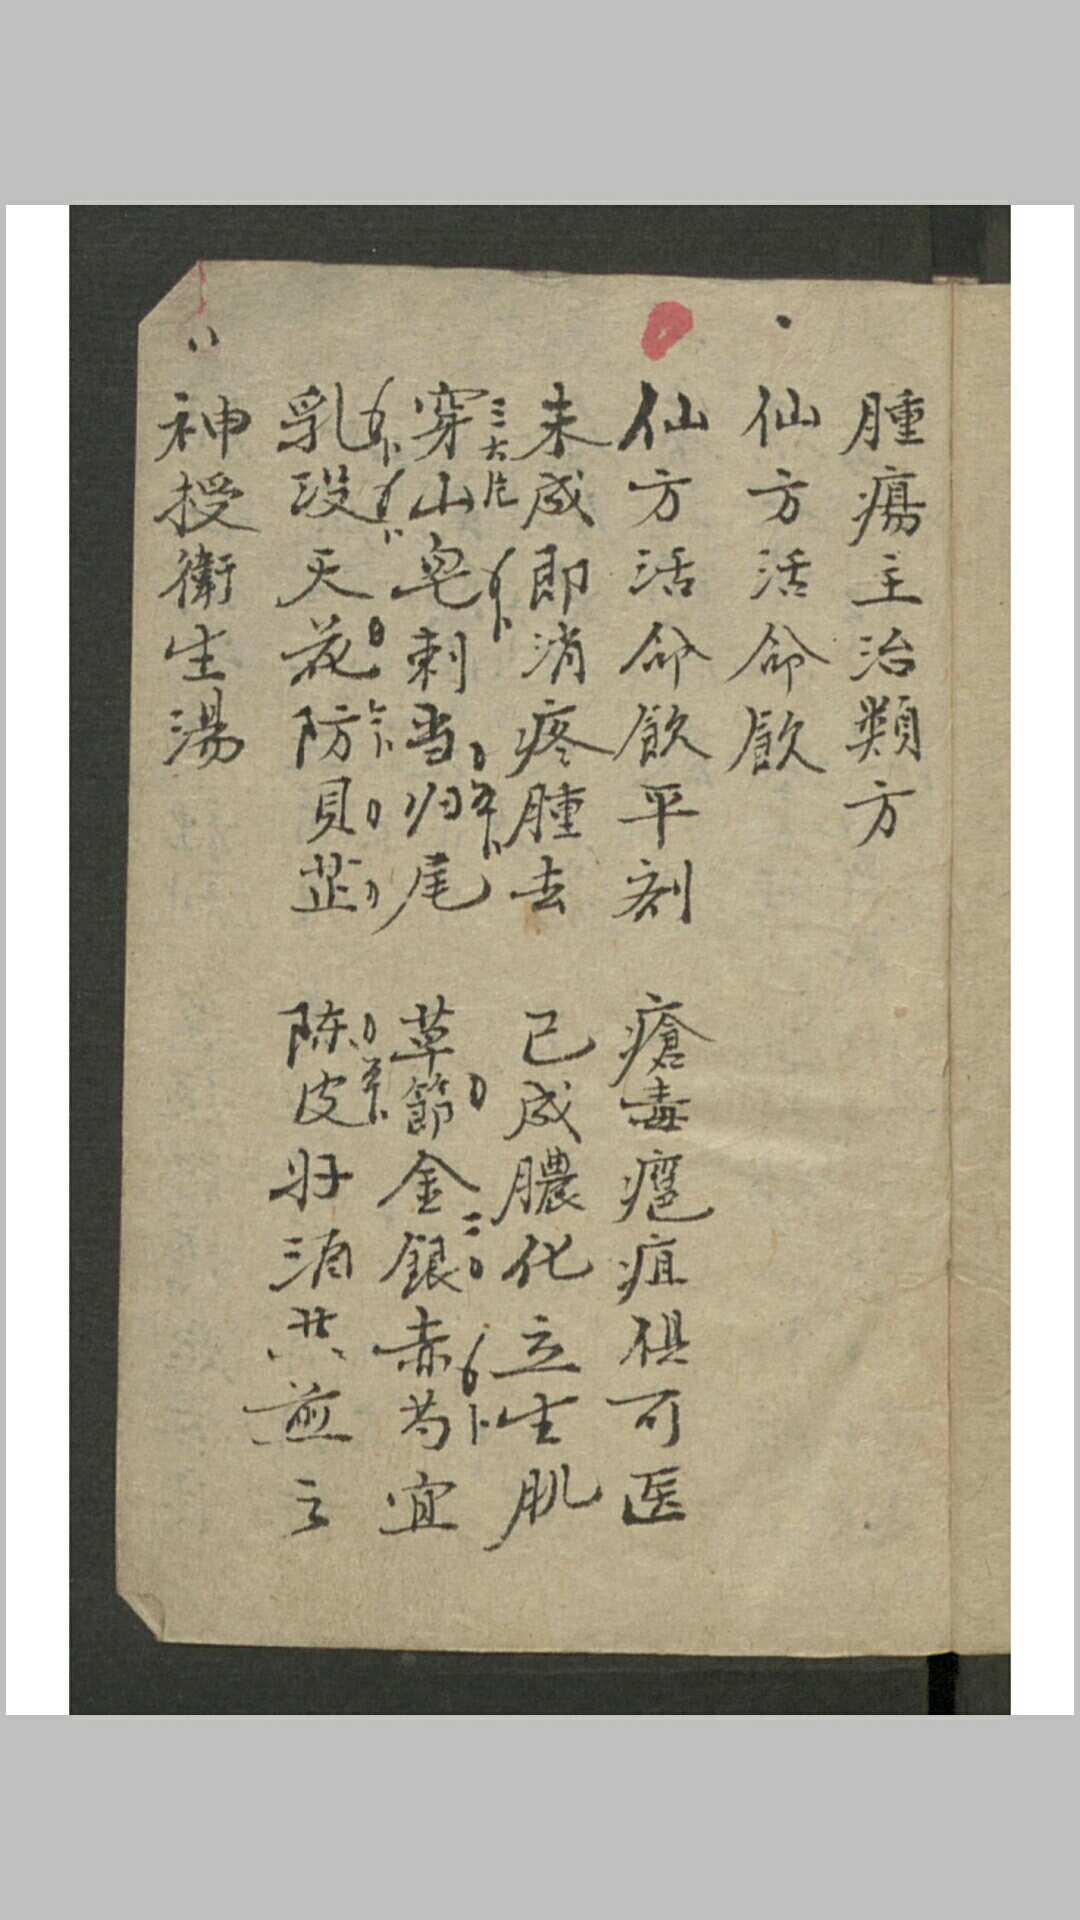 腫瘍主治類方
仙方活命飲
仙方活命飲平剤 瘡毒癰疽俱可医
未成即消疼腫去 已成膿化立生肌
穿山皂刺当归尾 草節金銀赤芍宜
三大片
乳没天花防貝芷 陈皮好酒共煎之
神授衛生湯